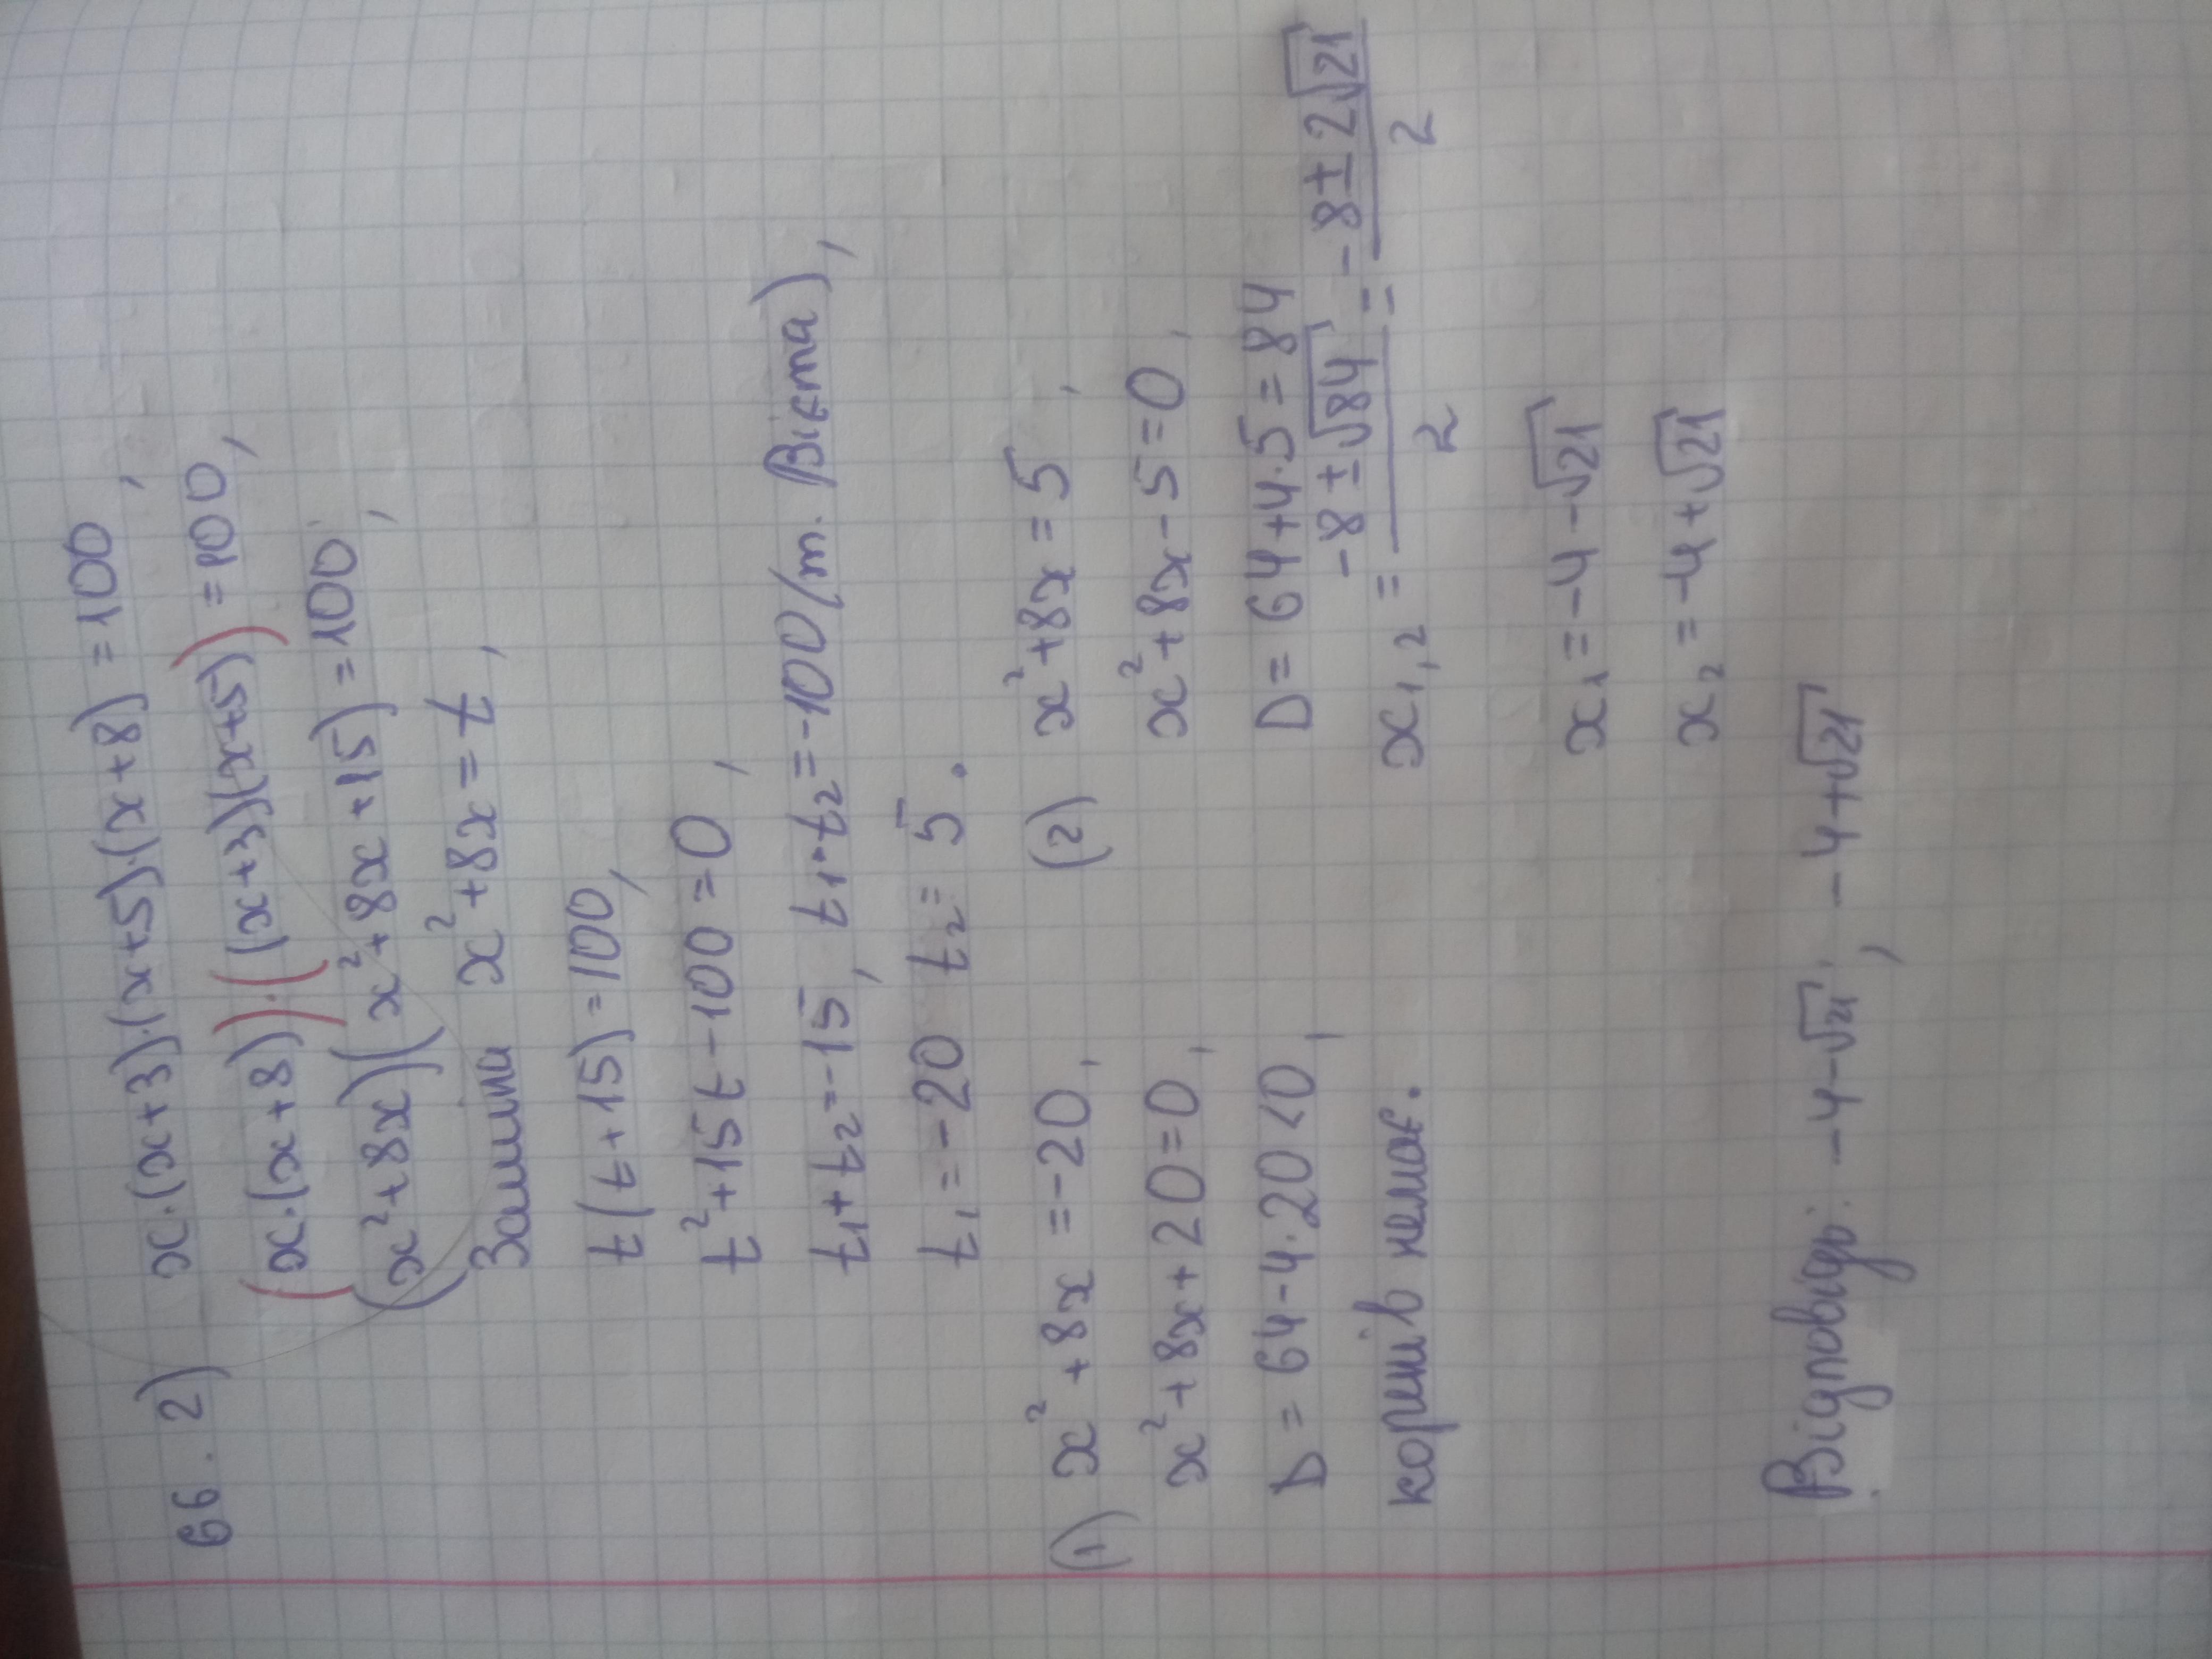 66. 2) x·(x+3)·(x+5)·(x+8)=100,
(x·(x+8))·((x+3)(x+5))=100,
(x²+8x)(x²+8x+15)=100,
Заміна x²+8x=t,
t(t+15)=100,
t²+15t-100=0,
t₁+t₂=-15, t₁·t₂=-100(т. Вієта),
t₁=-20 t₂=5.
(1) x²+8x=-20,
x²+8x+20=0,
D=64-4·20<0,
коренів немає.
(2) x²+8x=5,
x²+8x-5=0,
D=64+4·5=84
x₁,₂=(-8±√84)/2=(-8±2√21)/2
x₁=-4-√21
x₂=-4+√21
Відповідь: -4-√21; -4+√21